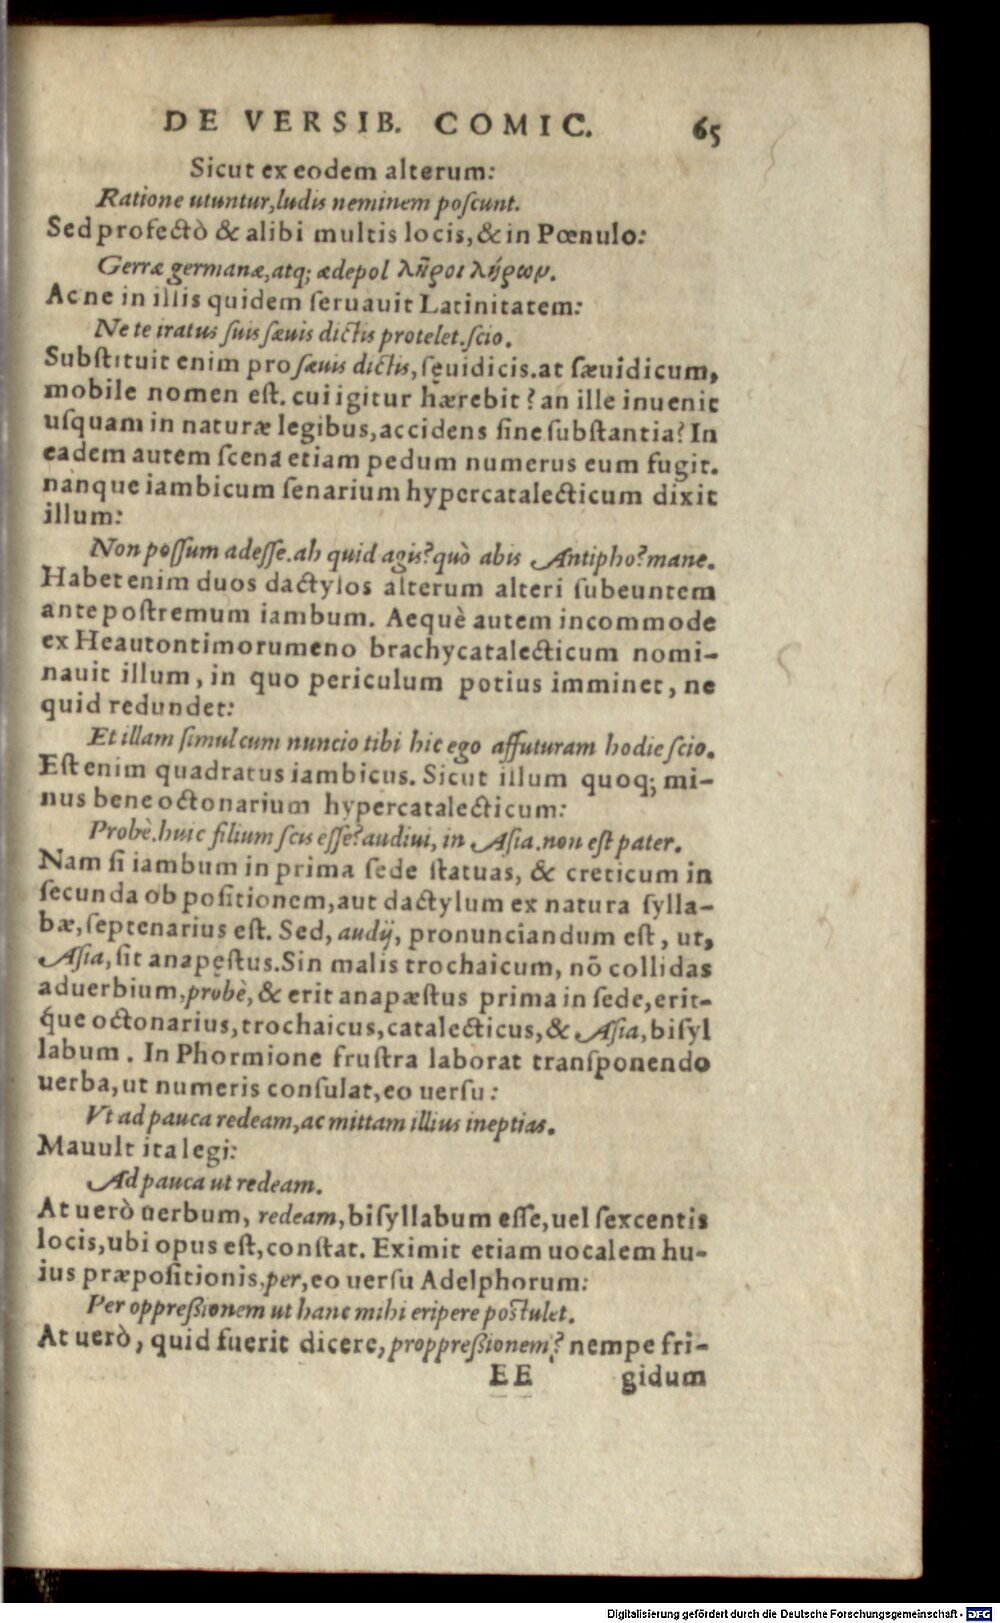 DE VERSIB. COMIC. 65
Sicut ex eodem alterum:
Ratione utuntur, ludis neminem poſcunt.
Sed profectò & alibi multis locis, & in Pœnulo:
Gerræ germanæ, atq; ædepol λῆροι λήρων.
Ac ne in illis quidem ſeruauit Latinitatem:
Ne te iratus ſuis ſæuis dictis protelet. ſcio.
Subſtituit enim pro ſæuis dictis, ſęuidicis. at ſæuidicum,
mobile nomen eſt. cui igitur hærebit? an ille inuenit
uſquam in naturæ legibus, accidens ſine ſubſtantia? In
eadem autem ſcena etiam pedum numerus eum fugit.
nanque iambicum ſenarium hypercatalecticum dixit
illum:
Non poſſum adeſſe. ah quid agis? quò abis Antipho? mane.
Habet enim duos dactylos alterum alteri ſubeuntem
ante poſtremum iambum. Aequè autem incommode
ex Heautontimorumeno brachycatalecticum nomi-
nauit illum, in quo periculum potius imminet, ne
quid redundet:
Et illam ſimul cum nuncio tibi hic ego affuturam hodie ſcio.
Eſt enim quadratus iambicus. Sicut illum quoq; mi-
nus bene octonarium hypercatalecticum:
Probè. huic filium ſcis eſſe? audiui, in Aſia. non eſt pater.
Nam ſi iambum in prima ſede ſtatuas, & creticum in
ſecunda ob poſitionem, aut dactylum ex natura ſylla-
bæ, ſeptenarius eſt. Sed, audij, pronunciandum eſt, ut,
Aſia, ſit anapęſtus. Sin malis trochaicum, nõ collidas
aduerbium, probè, & erit anapæſtus prima in ſede, erit-
q́ue octonarius, trochaicus, catalecticus, & Aſia, biſyl
labum. In Phormione fruſtra laborat tranſponendo
uerba, ut numeris conſulat, eo uerſu:
Vt ad pauca redeam, ac mittam illius ineptias.
Mauult ita legi:
Ad pauca ut redeam.
At uerò uerbum, redeam, biſyllabum eſſe, uel ſexcentis
locis, ubi opus eſt, conſtat. Eximit etiam uocalem hu-
ius præpoſitionis, per, eo uerſu Adelphorum:
Per oppreßionem ut hanc mihi eripere poſtulet.
At uerò, quid fuerit dicere, proppreßionem? nempe fri-
EE gidum
Digitalisierung gefördert durch die Deutsche Forschungsgemeinschaft - DFG